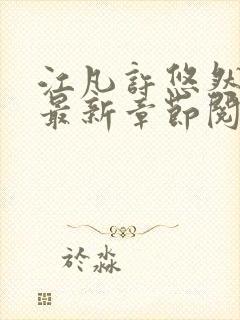 江凡許悠然
最新章節閱
於淼